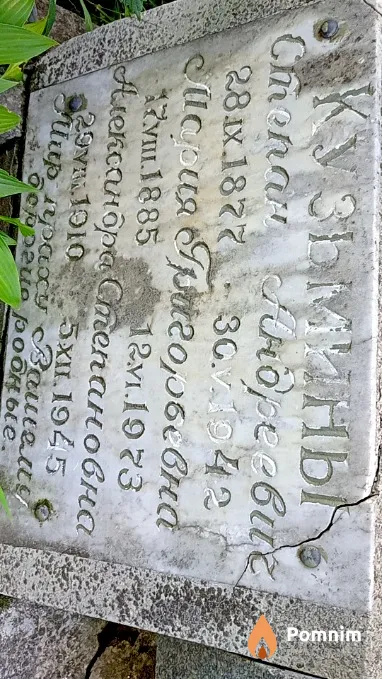 КУЗЬМИНЫ
Степан Андреевич
28.IX.1877 30.V.1942
Мария Григорьевна
17.VIII.1885 12.VI.1973
Александра Степановна
29.VIII.1910 5.XII.1945
Мир праху Вашему,
дорогие родные.
Pomnim